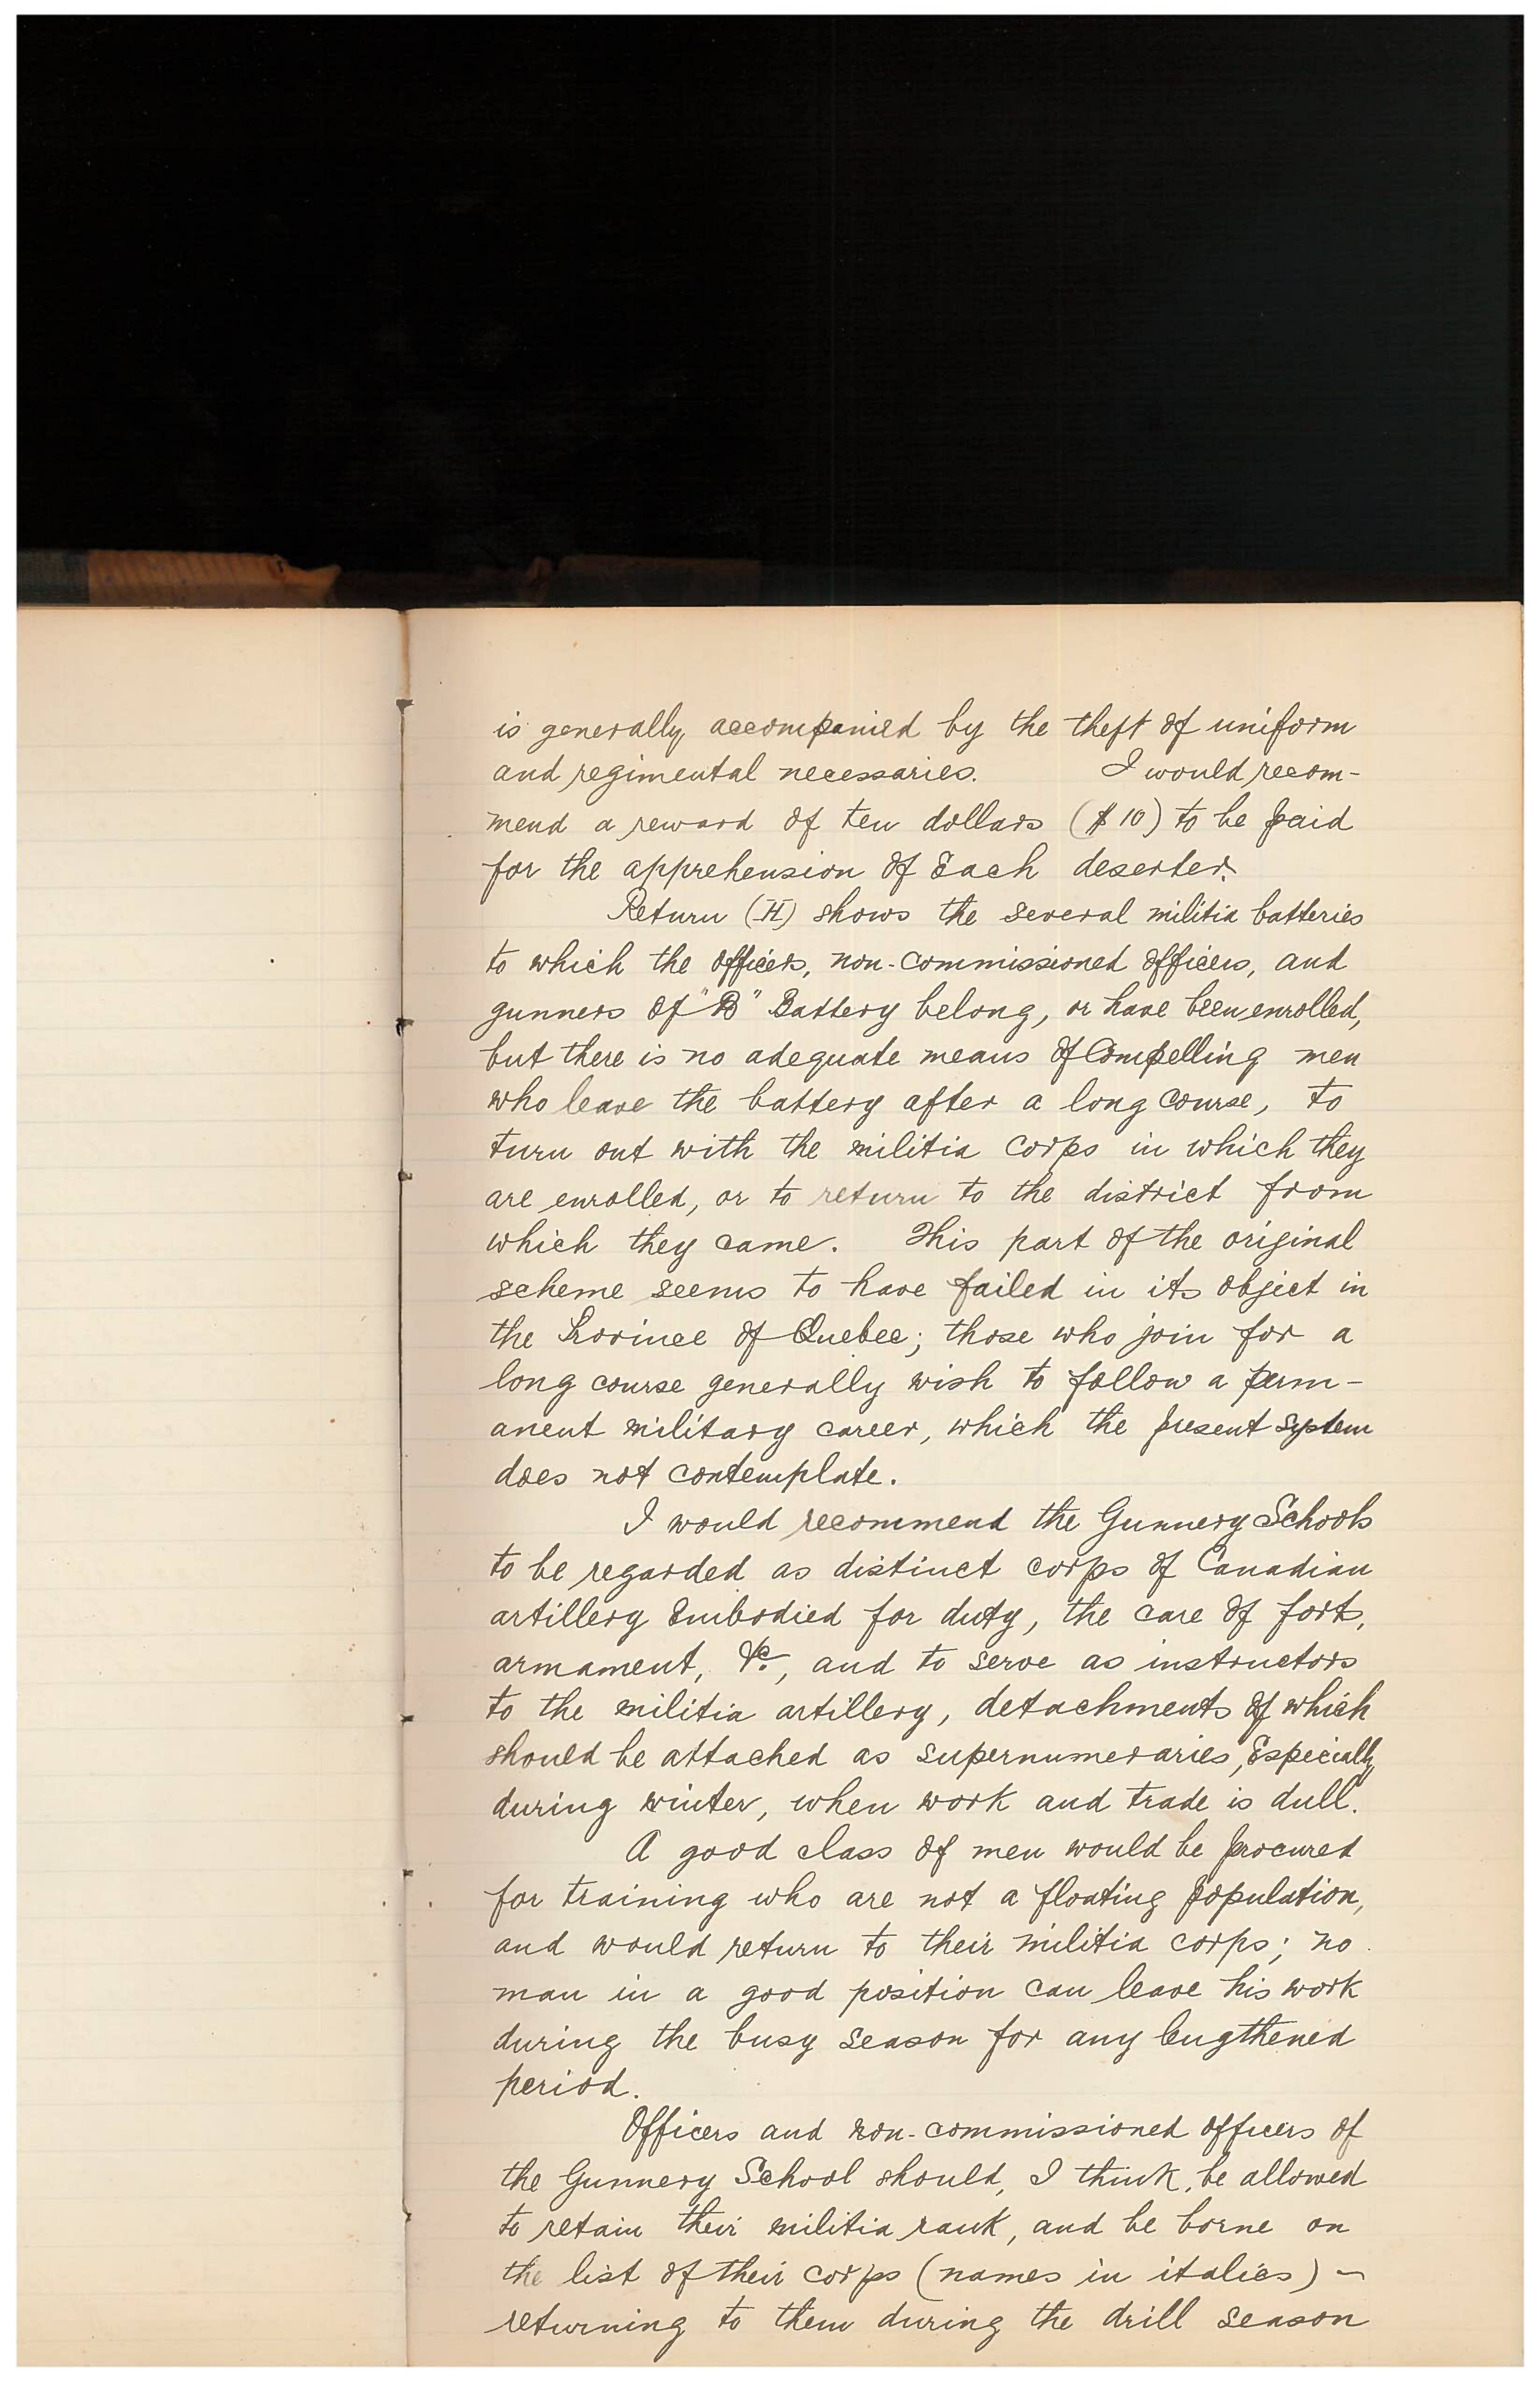 is generally accompanied by the theft of uniform
and regimental necessaries. I would recom-
mend a reward of ten dollars ($10) to be paid
for the apprehension of Each deserter.
Return (H) shows the several militia batteries
to which the officers, non-commissioned officers, and
gunners of "B" Battery belong, or have been enrolled,
but there is no adequate means of Compelling men
who leave the battery after a long course, to
turn out with the militia corps in which they
are enrolled, or to return to the district from
which they came. This part of the original
scheme seems to have failed in its object in
the Province of Quebec; those who join for a
long course generally wish to follow a perm-
anent military career, which the present system
does not contemplate.
I would recommend the Gunnery Schools
to be regarded as distinct corps of Canadian
artillery Embodied for duty, the care of forts,
armament, &c., and to serve as instructors
to the militia artillery, detachments of which
should be attached as supernumeraries, Especially
during winter, when work and trade is dull.
A good class of men would be procured
for training who are not a floating population,
and would return to their militia corps; no
man in a good position can leave his work
during the busy season for any lengthened
period.
Officers and non-commissioned officers of
the Gunnery School should, I think, be allowed
to retain their militia rank, and be borne on
the list of their corps (names in italics) -
returning to them during the drill season